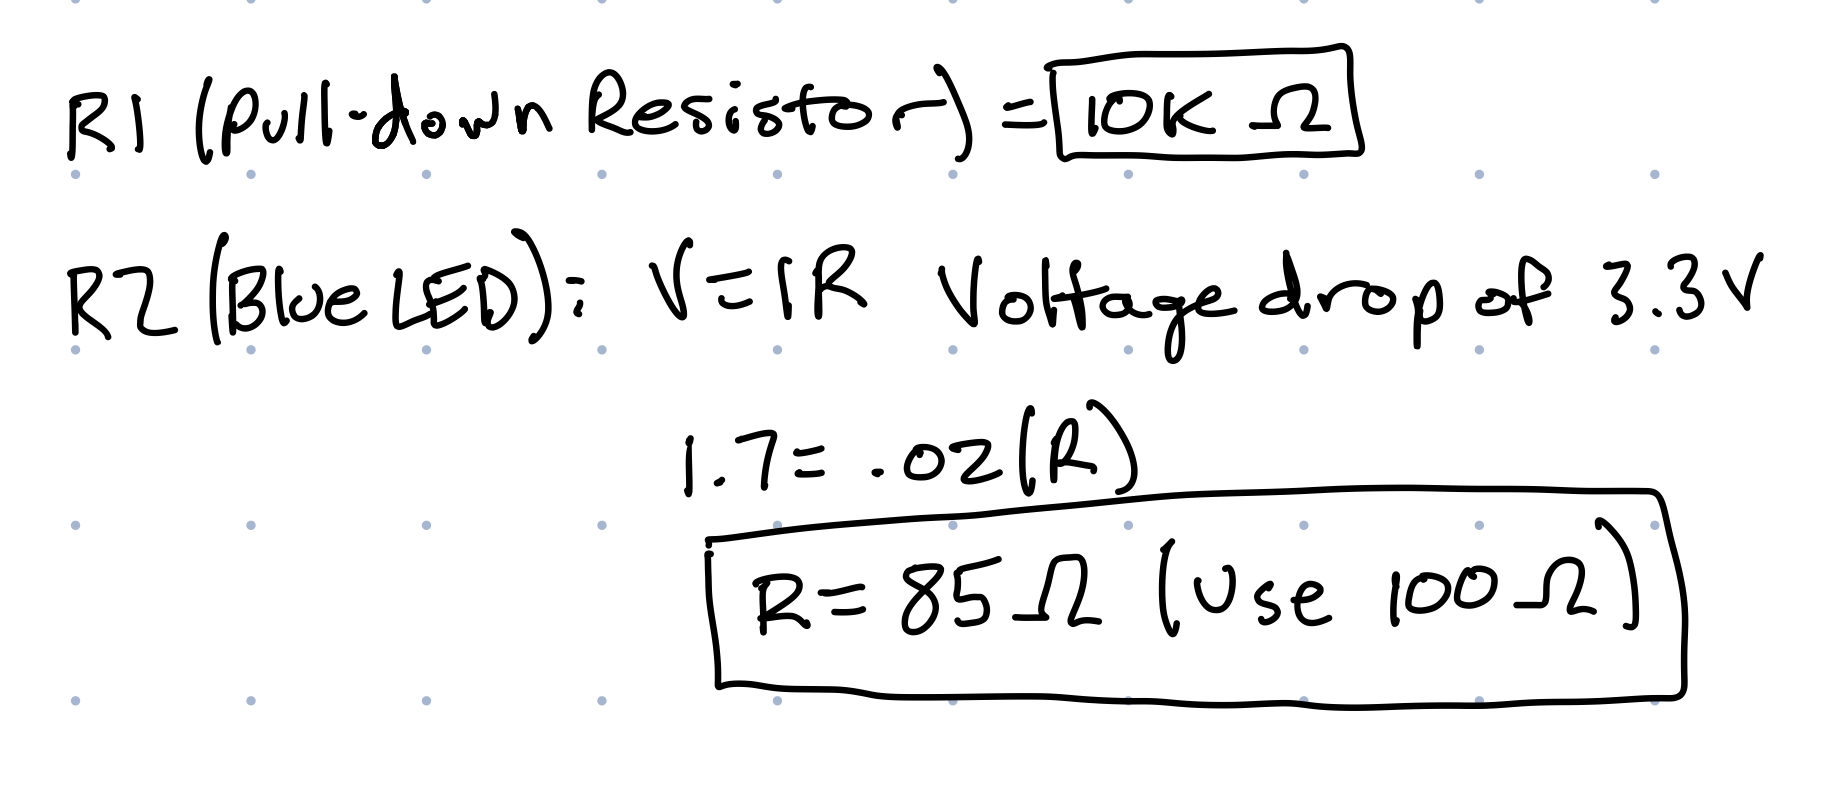 R1 (Pull-down Resistor) = 10K Ω
R2 (Blue LED): V=IR Voltage drop of 3.3V
1.7= .02(R)
R= 85Ω (Use 100Ω)